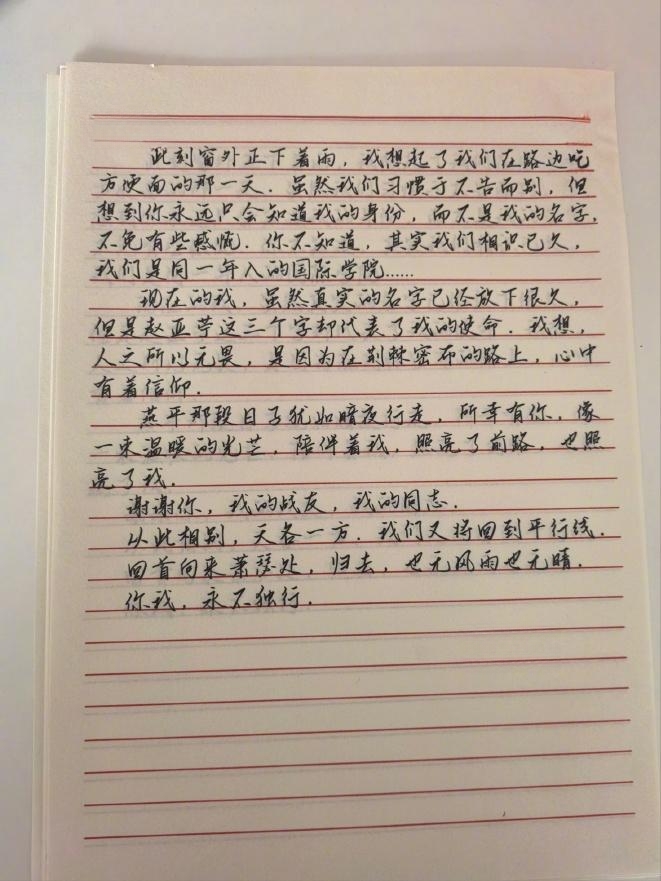 此刻窗外正下着雨，我想起了我们在路边吃
方便面的那一天．虽然我们习惯于不告而别，但
想到你永远只会知道我的身份，而不是我的名字，
不免有些感慨．你不知道，其实我们相识已久，
我们是同一年入的国际学院……
现在的我，虽然真实的名字已经放下很久，
但是赵亚苧这三个字却代表了我的使命．我想，
人之所以无畏，是因为在荆棘密布的路上，心中
有着信仰．
燕平那段日子犹如暗夜行走，所幸有你，像
一束温暖的光芒，陪伴着我，照亮了前路，也照
亮了我．
谢谢你，我的战友，我的同志．
从此相别，天各一方．我们又将回到平行线．
回首向来萧瑟处，归去，也无风雨也无晴．
你我，永不独行．